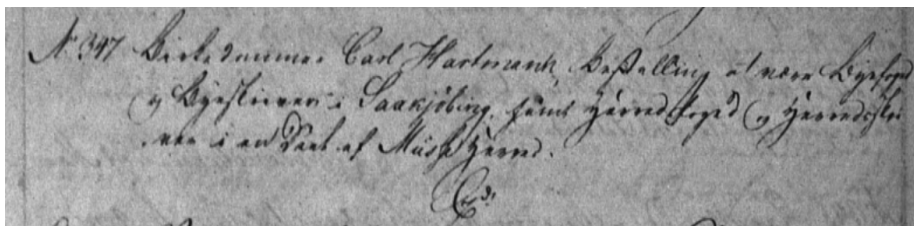 N. 347 Birkedommer Carl Hartmann, Bestalling at være Byefoged
og Byeskriver i Saxkjøbing, samt Herredsfoged og Herredsskri
ver i en Deel af Musse Herred.